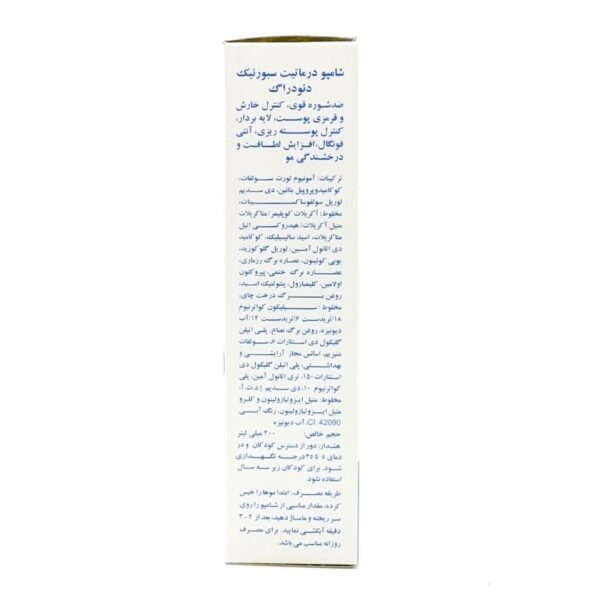 شامپو درماتیت سبورئیک
دئودراگ
ضدشوره قوی، کنترل خارش
و قرمزی پوست، لایه بردار،
کنترل پوسته ریزی، آنتی
فونگال، افزایش لطافت و
درخشندگی مو
ترکیبات: آمونیوم لورت سولفات،
کوکامیدوپروپیل بتائین، دی سدیم
لوریل سولفوساکسینات،
مخلوط: آکریلات کوپلیمر/ متاکریلات
متیل آکریلات/ هیدروکسی اتیل
متاکریلات، اسید سالیسیلیک، کوکامید
دی اتانول آمین، لوریل گلوکوزید،
پوبی کوئینون، عصاره برگ رزماری،
عصاره برگ ختمی، پیروکتون
اولامین، کلیمبازول، پنتوتنیک اسید،
روغن برگ درخت چای،
مخلوط: سیلیکون کواترنیوم
۱۸/تریدست ۶/تریدست ۱۲/آب
دیونیزه، روغن برگ نعناع، پلی اتیلن
گلیکول دی استئارات ۶، سولفات
منیزیم، اسانس مجاز آرایشی و
بهداشتی، پلی اتیلن گلیکول دی
استئارات ۱۵۰، تری اتانول آمین، پلی
کواترنیوم ۱۰، دی سدیم ا.د.ت.آ،
مخلوط: متیل ایزوتیازولینون و کلرو
متیل ایزوتیازولینون، رنگ آبی
CI: 42090، آب دیونیزه
حجم خالص: ۲۰۰ میلی لیتر
هشدار: دور از دسترس کودکان و در
دمای ۵ تا ۳۵ درجه نگهداری
شود. برای کودکان زیر سه سال
استفاده نشود.
طریقه مصرف: ابتدا موها را خیس
کرده، مقدار مناسبی از شامپو را روی
سر ریخته و ماساژ دهید، بعد از ۲-۳
دقیقه آبکشی نمایید. برای مصرف
روزانه مناسب می باشد.